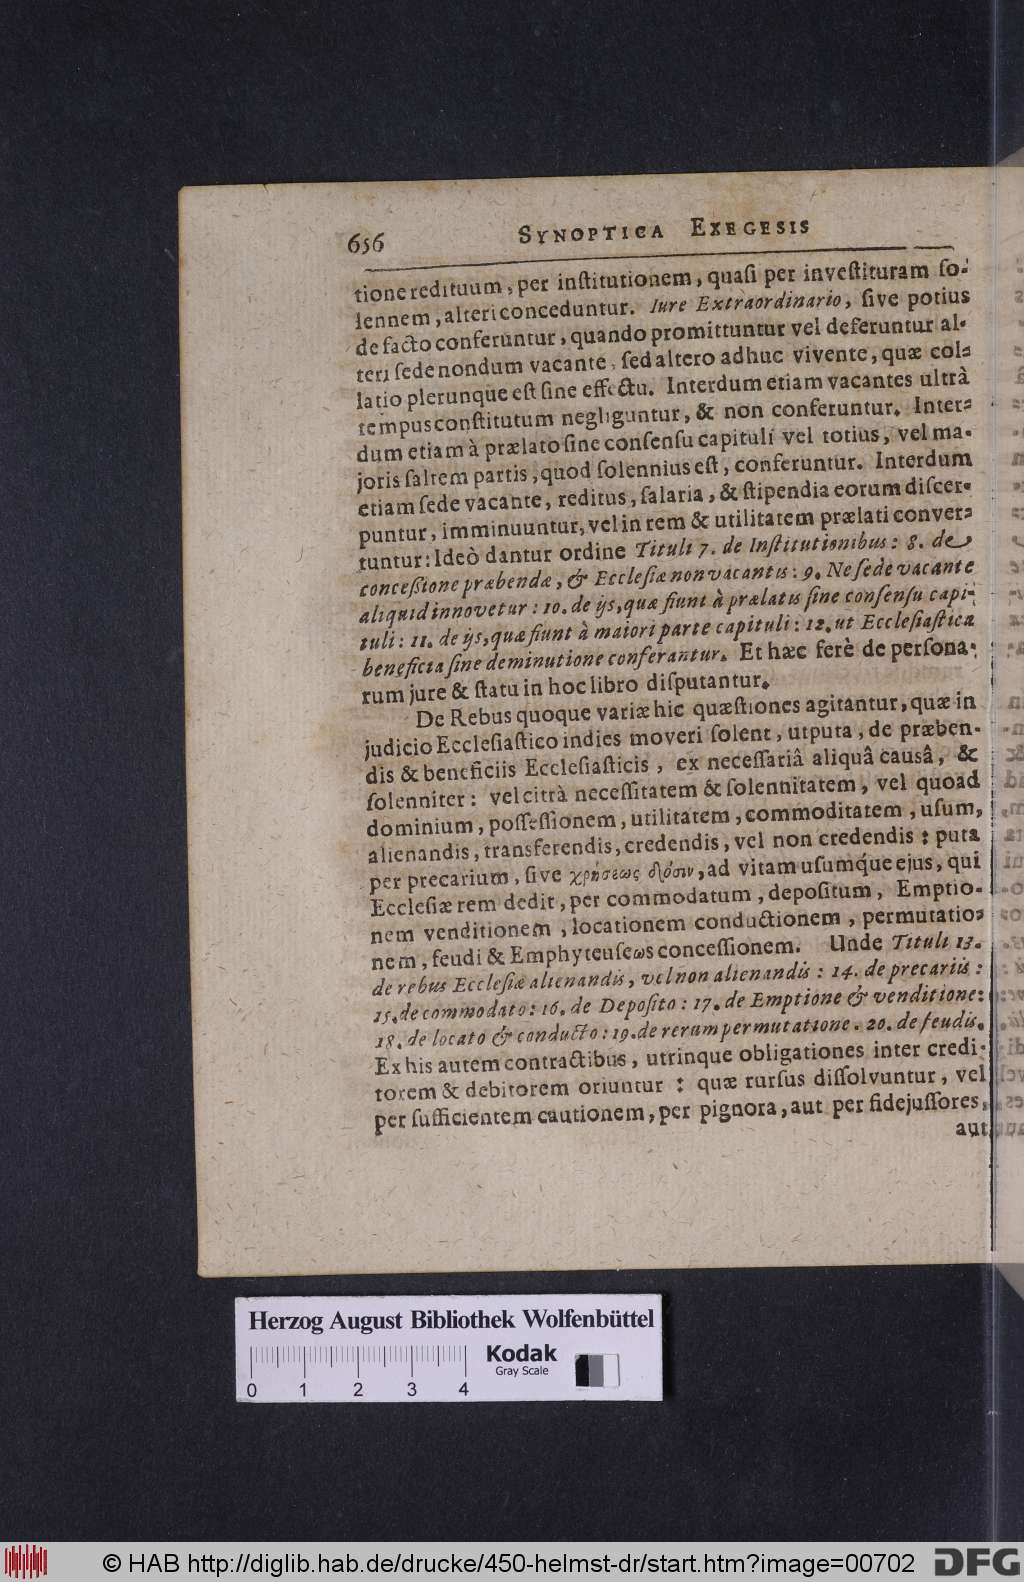 656 SYNOPTICA EXEGESIS
tione redituum, per inſtitutionem, quaſi per inveſtituram ſo-
lennem, alteri conceduntur. Iure Extraordinario, ſive potius
de facto conferuntur, quando promittuntur vel deferuntur al-
teri ſede nondum vacante, ſed altero adhuc vivente, quæ col-
latio plerunque eſt ſine effectu. Interdum etiam vacantes ultrà
tempus conſtitutum negliguntur, & non conferuntur. Inter-
dum etiam à prælato ſine conſenſu capituli vel totius, vel ma-
joris ſaltem partis, quod ſolennius eſt, conferuntur. Interdum
etiam ſede vacante, reditus, ſalaria, & ſtipendia eorum diſcer-
puntur, imminuuntur, vel in rem & utilitatem prælati conver-
tuntur: Ideò dantur ordine Tituli 7. de Inſtitutionibus: 8. de
conceſſione præbendæ, & Eccleſiæ non vacantis: 9. Ne ſede vacante
aliquid innovetur: 10. de ijs, quæ fiunt à prælatis ſine conſenſu capi-
tuli: 11. de ijs, quæ fiunt à maiori parte capituli: 12. ut Eccleſiaſtica
beneficia ſine deminutione conferantur. Et hæc ferè de perſona-
rum jure & ſtatu in hoc libro diſputantur.
De Rebus quoque variæ hic quæſtiones agitantur, quæ in
judicio Eccleſiaſtico indies moveri ſolent, utputa, de præben-
dis & beneficiis Eccleſiaſticis, ex neceſſariâ aliquâ causâ, &
ſolenniter: vel citrà neceſſitatem & ſolennitatem, vel quoad
dominium, poſſeſſionem, utilitatem, commoditatem, uſum,
alienandis, transferendis, credendis, vel non credendis: puta
per precarium, ſive χρήσεως δόσιν, ad vitam uſumq́ue ejus, qui
Eccleſiæ rem dedit, per commodatum, depoſitum, Emptio-
nem venditionem, locationem conductionem, permutatio-
nem, feudi & Emphyteuſeωs conceſſionem. Unde Tituli 13.
de rebus Eccleſiæ alienandis, vel non alienandis: 14. de precariis:
15. de commodato: 16. de Depoſito: 17. de Emptione & venditione:
18. de locato & conducto: 19. de rerum permutatione. 20. de feudis.
Ex his autem contractibus, utrinque obligationes inter credi-
torem & debitorem oriuntur: quæ rurſus diſſolvuntur, vel
per ſufficientem cautionem, per pignora, aut per fidejuſſores,
aut
Herzog August Bibliothek Wolfenbüttel
Kodak
Gray Scale
0 1 2 3 4
© HAB http://diglib.hab.de/drucke/450-helmst-dr/start.htm?image=00702 DFG